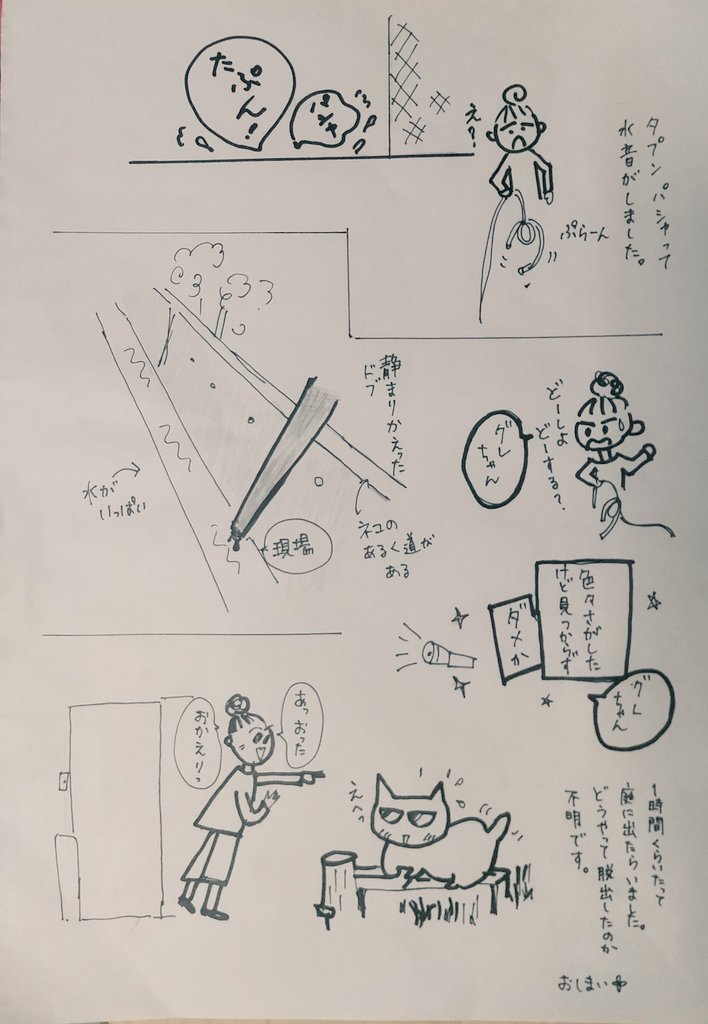 タプン パシャって
水音がしました。
え？
ぷらーん
パシャ
たぷん！
どーしよ
どーする？
グレ
ちゃん
静まりかえった
ドブ
ネコの
あるく道が
ある
現場
水が
いっぱい
色々さがした
けど見つからず
ダメか
グレ
ちゃん
1時間くらいたって
庭に出たらいました。
どうやって脱出したのか
不明です。
おしまい
えへっ
あっ おった
おかえりっ